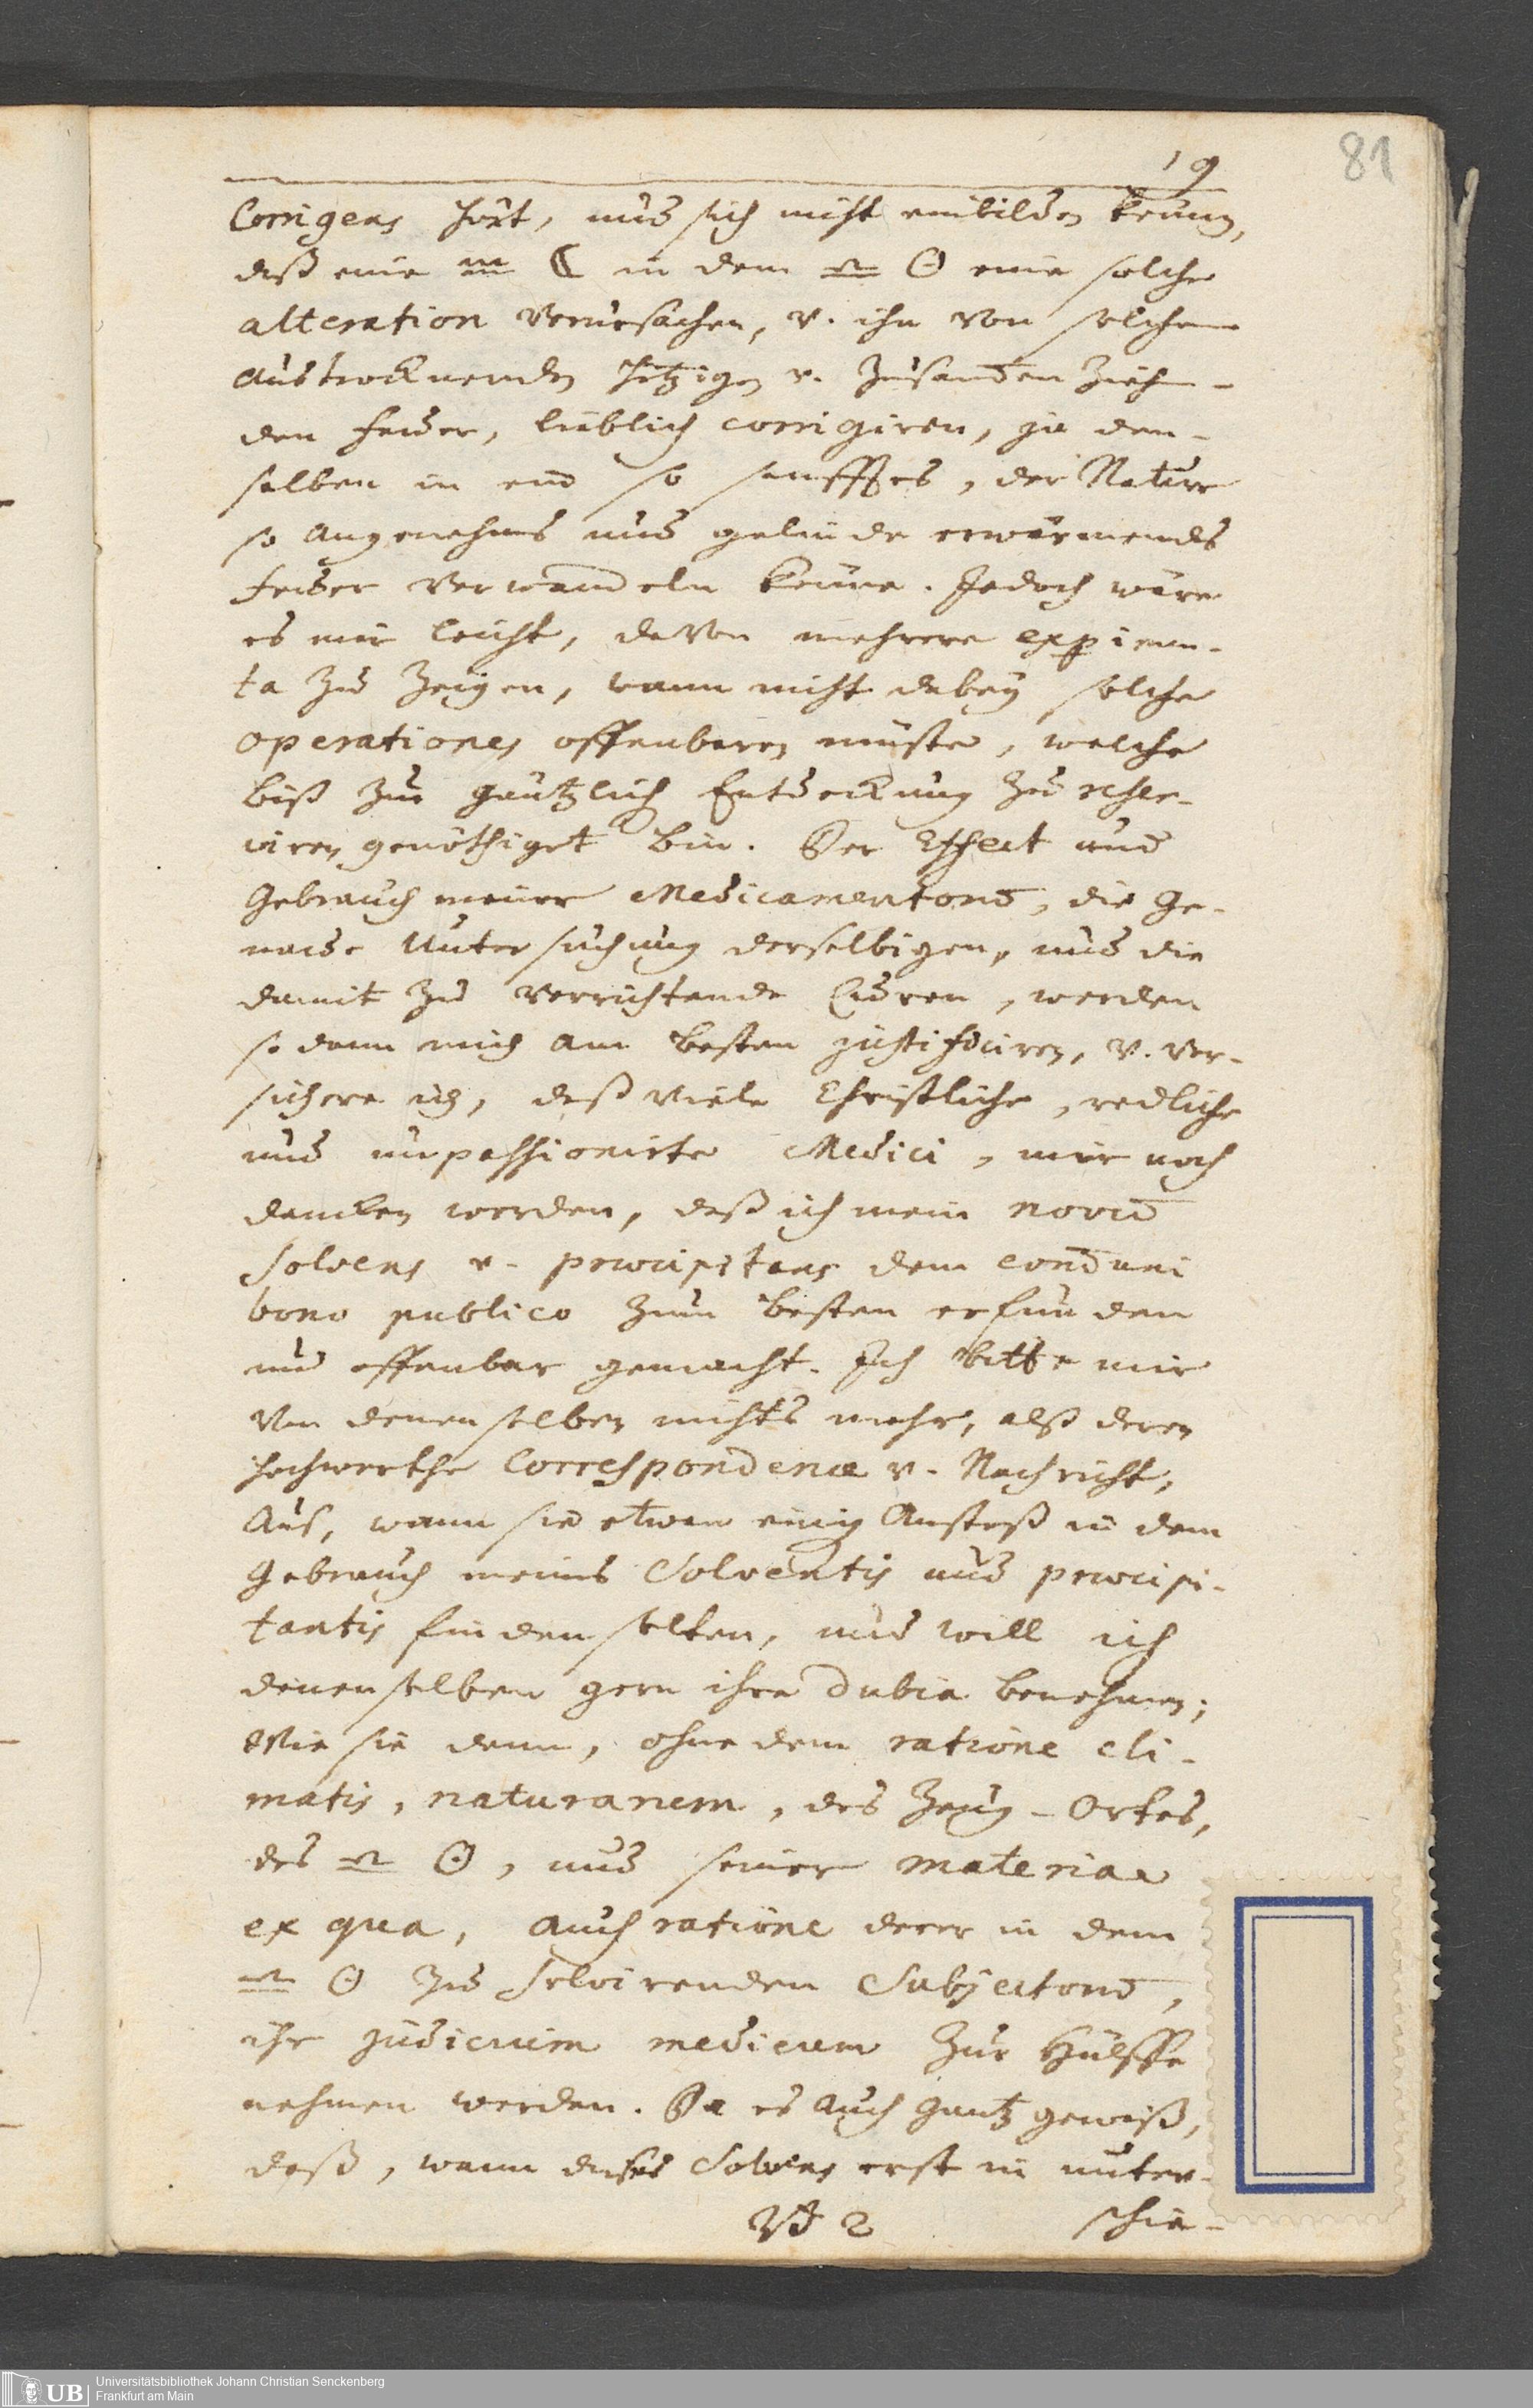 81
19
Corrigens hört, und sich nicht einbilden könen,
daß eine ☾ in dem ☉ eine solche
alteration verursachen, v. ihn von solchem
austrocknenden hitzigen v. zusam̄en ziehen-
den feuer, lieblich corrigiren, ja den-
selben in ein so sanfftes, der Natur
so angenehmes und gelinde erwärmendes
feuer verwandeln könne. Jedoch wäre
es mir leicht, davon mehrere experimen-
ta zu zeigen, wann nicht dabey solche
operationes offenbaren müste, welche
biß zur gäntzlich Entdeckung zu reser-
viren genöthiget bin. Der Effect und
Gebrauch meiner Medicamentorū, die ge-
naue Untersuchung derselbigen, und die
damit zu verrichtende Curen, werden
so dann mich am besten justificiren, v. ver-
sichere ich, daß viele Christliche, redliche
und unpassionirte Medici, mir noch
dancken werden, daß ich mein novū
Solvens v. præcipitans dem com̄uni
bono publico zum besten erfunden
und offenbar gemacht. Ich bitte mir
von denenselben nichts mehr, alß deren
hochwerthe Correspondence v. Nachricht,
aus, wann sie etwan einig Anstoß in dem
Gebrauch meines Solventis und præcipi-
tantis finden solten, und will ich
denenselben gern ihre dubia benehmen;
Wie sie denn, ohne dem ratione cli-
matis, naturanem, des Zeug-Ortes,
des ☉, und seiner materiae
ex qua, auch ratione derer in dem
☉ zu solvirenden Subjectorū,
ihr judicium medicum zur Hülffe
nehmen werden. Da es auch gantz gewiß,
daß, wann dises Solvens erst in unter-
2 schie-
UB Universitätsbibliothek Johann Christian Senckenberg
Frankfurt am Main